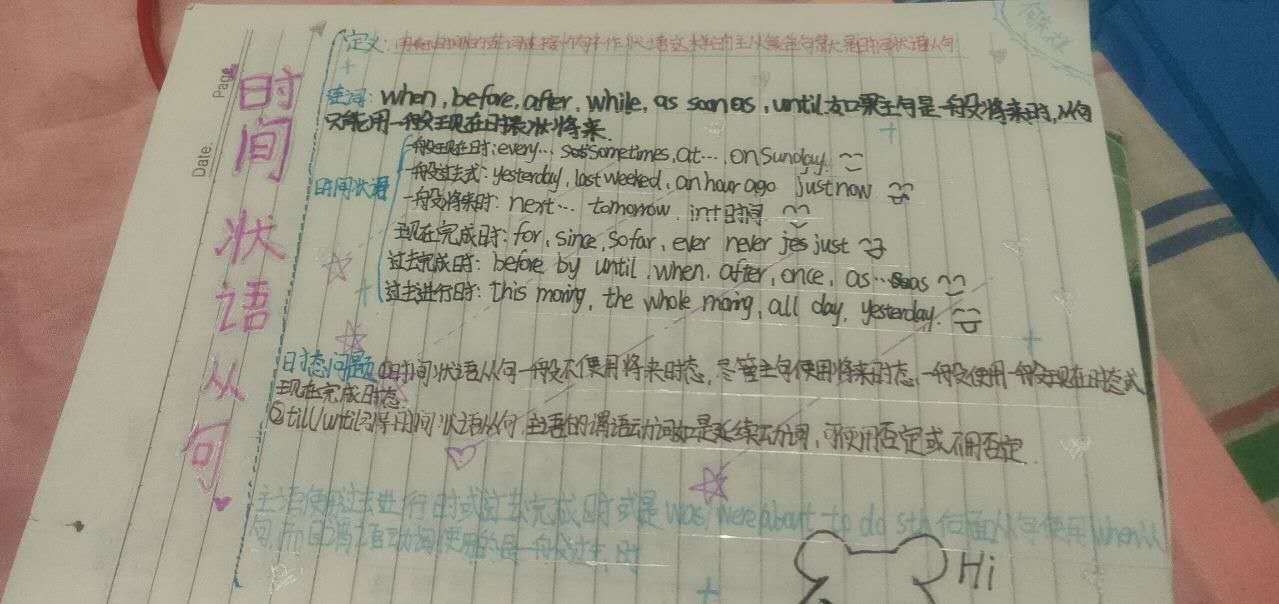 Page.
Date.
时间状语从句
定义:由表示时间的连词连接一个句子作状语这样的主从复合句就是时间状语从句
连词: when, before, after, while, as soon as, until.如果主句是一般将来时,从句
只能用一般现在时表示将来.
时间状语
一般现在时:every… Sometimes, at…, on Sunday.
一般过去式: yesterday, last weeked, an hour ago just now
一般将来时: next… tomorrow. in+时间.
现在完成时: for, since, so far, ever never just
过去完成时: before by until, when. after, once, as…as
过去进行时: this moring, the whole moring, all day, yesterday.
时态问题 ①时间状语从句一般不使用将来时态,尽管主句使用将来时态,一般使用一般现在时态或
现在完成时态
②till/until引导时间状语从句,主语的谓语动词如是延续动词,可使用否定或不用否定.
主语使用过去进行时或过去完成时或是was were about to do sth,后面从句使用when从
句,而且谓语动词使用的是一般过去时
Hi